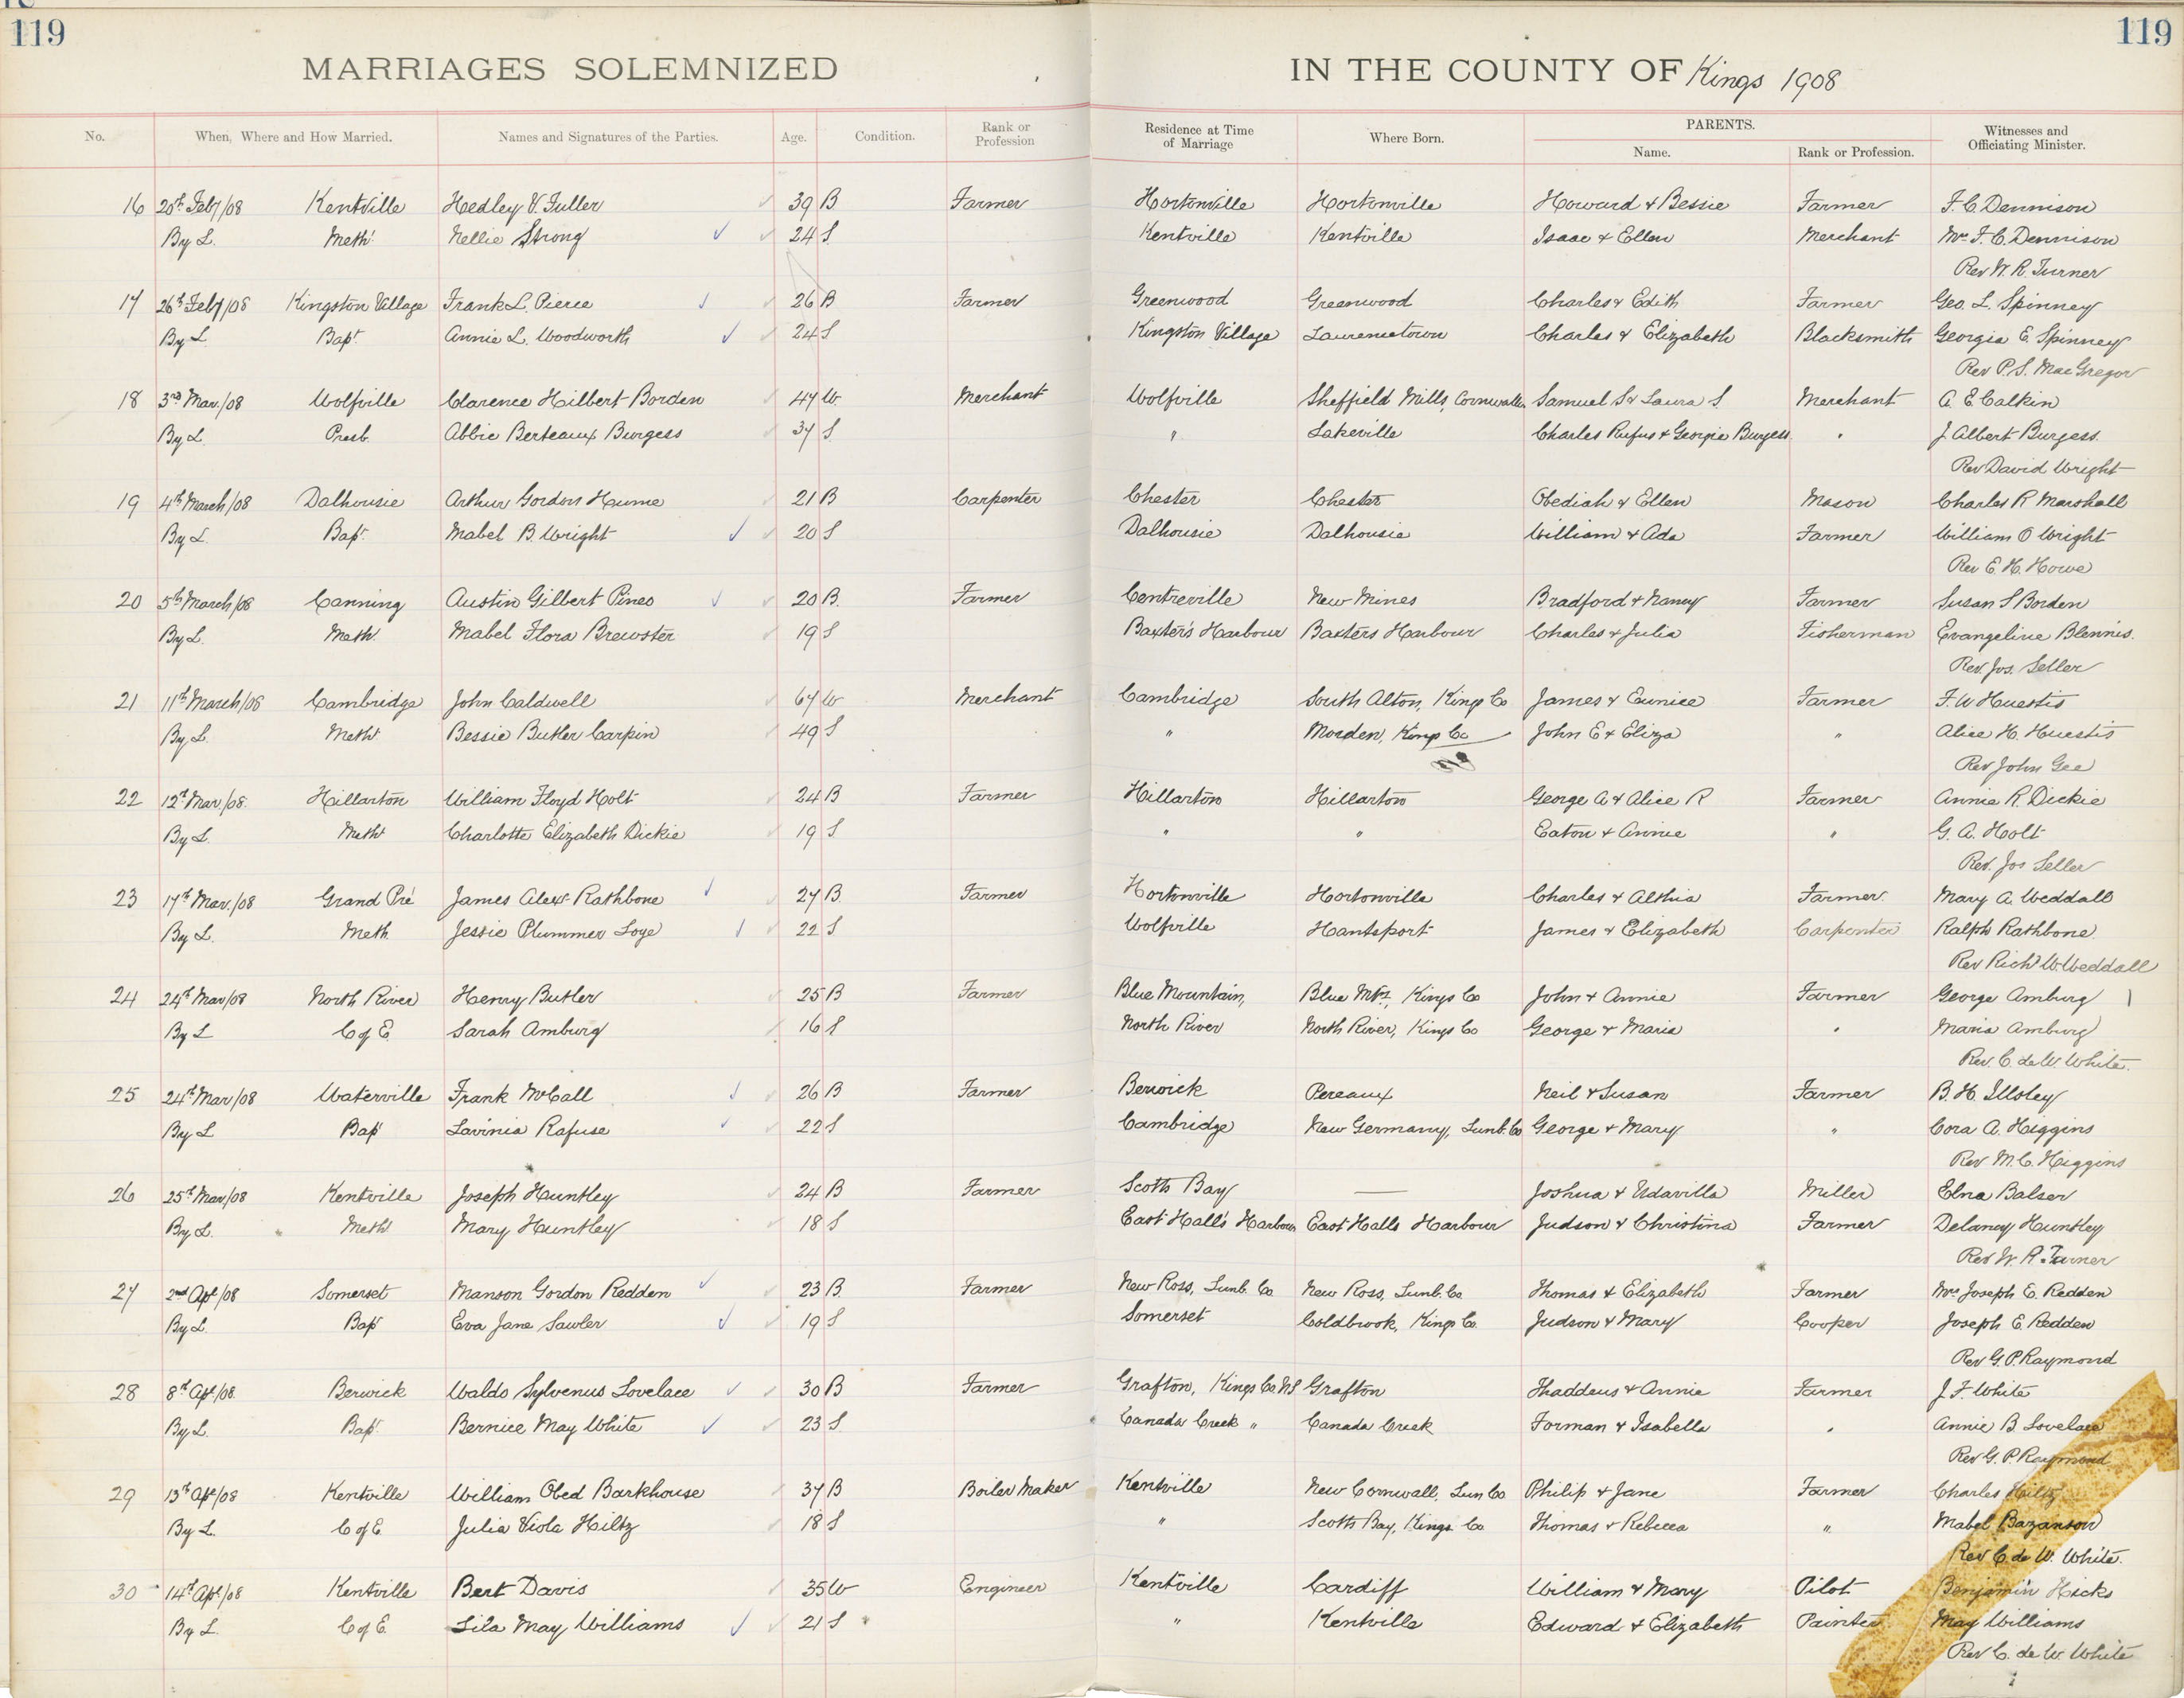 119
119
MARRIAGES SOLEMNIZED IN THE COUNTY OF Kings 1908
No. When, Where and How Married. Names and Signatures of the Parties. Age. Condition. Rank or Profession Residence at Time of Marriage Where Born. PARENTS. Name. Rank or Profession. Witnesses and Officiating Minister.
16 20th Feby/08 Kentville Hedley V. Fuller 39 B Farmer Hortonville Hortonville Howard & Bessie Farmer F. C. Dennison
By L. Meth. Nellie Strong 24 S Kentville Kentville Isaac & Ellen Merchant Mrs F. C. Dennison
Rev W. R. Turner
17 26th Feby/08 Kingston Village Frank L. Pierce 26 B Farmer Greenwood Greenwood Charles & Edith Farmer Geo. L. Spinney
By L. Bapt. Annie L. Woodworth 24 S Kingston Village Laurencetown Charles & Elizabeth Blacksmith Georgia E. Spinney
Rev P. S. MacGregor
18 3rd Mar./08 Wolfville Clarence Hilbert Borden 47 W Merchant Wolfville Sheffield Mills, Cornwallis Samuel S & Laura S. Merchant A. E. Calkin
By L. Presb. Abbie Berteaux Burgess 37 S " Lakeville Charles Rufus & Georgie Burgess " J. Albert Burgess.
Rev David Wright
19 4th March/08 Dalhousie Arthur Gordon Hume 21 B Carpenter Chester Chester Obediah & Ellen Mason Charles R Marshall
By L. Bapt. Mabel B. Wright 20 S Dalhousie Dalhousie William & Ada Farmer William O Wright
Rev E. H. Howe
20 5th March/08 Canning Austin Gilbert Pineo 20 B. Farmer Centreville New Mines Bradford & Nancy Farmer Susan S Borden
By L. Meth. Mabel Flora Brewster 19 S Baxter's Harbour Baxters Harbour Charles & Julia Fisherman Evangeline Blennis.
Rev. Jos. Seller
21 11th March/08 Cambridge John Caldwell 67 W Merchant Cambridge South Alton, Kings Co James & Eunice Farmer F. W Huestis
By L. Meth Bessie Butler Carpin 49 S " Morden, Kings Co John E & Eliza " Alice H. Huestis
Rev John Gee
22 12th Mar/08. Hillarton William Floyd Holt 24 B Farmer Hillarton Hillarton George A & Alice R Farmer Annie R. Dickie
By L. Meth Charlotte Elizabeth Dickie 19 S " " Eaton & Annie " G. A. Holt
Rev. Jos Seller
23 17th Mar./08 Grand Pré James Alexr Rathbone 27 B. Farmer Hortonville Hortonville Charles & Althia Farmer. Mary A. Weddall
By L. Meth Jessie Plummer Loye 22 S Wolfville Hantsport James & Elizabeth Carpenter Ralph Rathbone.
Rev Richd W. Weddall
24 24th Mar/08 North River Henry Butler 25 B Farmer Blue Mountain, Blue Mtn, Kings Co John & Annie Farmer George Amburg
By L C of E. Sarah Amburg 16 S North River North River, Kings Co George & Maria " Maria Amburg
Rev. C. de W. White.
25 24th Mar/08 Waterville Frank McCall 26 B Farmer Berwick Pereaux Neil & Susan Farmer B. H. Illsley
By L Bapt Lavinia Rafuse 22 S Cambridge New Germany, Lunb. Co George & Mary " Cora A. Higgins
Rev M. C. Higgins
26 25th Mar/08 Kentville Joseph Huntley 24 B Farmer Scotts Bay — Joshua & Udavilla Miller Elna Balser
By L. Meth Mary Huntley 18 S East Hall's Harbour East Halls Harbour Judson & Christina Farmer Delancy Huntley
Rev W. R. Turner
27 2nd Apl/08 Somerset Manson Gordon Redden 23 B. Farmer New Ross, Lunb. Co New Ross, Lunb. Co Thomas & Elizabeth Farmer Mrs Joseph E. Redden
By L. Bapt Eva Jane Sawler 19 S Somerset Coldbrook, Kings Co. Judson & Mary Cooper Joseph E. Redden
Rev G. P. Raymond
28 8th Apl/08. Berwick Waldo Sylvenus Lovelace 30 B Farmer Grafton, Kings Co NS Grafton Thaddeus & Annie Farmer J. F. White
By L. Bapt. Bernice May White 23 S. Canada Creek " Canada Creek Forman & Isabella " Annie B. Lovelace
Rev G. P. Raymond
29 13th Apl/08 Kentville William Obed Barkhouse 37 B Boiler Maker Kentville New Cornwall, Lun Co Philip & Jane Farmer Charles Hiltz
By L. C of E Julia Viola Hiltz 18 S " Scotts Bay, Kings Co Thomas & Rebecca " Mabel Bazanson
Rev C. de W. White.
30 14th Apl/08 Kentville Bert Davis 35 W Engineer Kentville Cardiff William & Mary Pilot Benjamin Hicks
By L. C of E. Lila May Williams 21 S " Kentville Edward & Elizabeth Painter May Williams
Rev C. de W. White